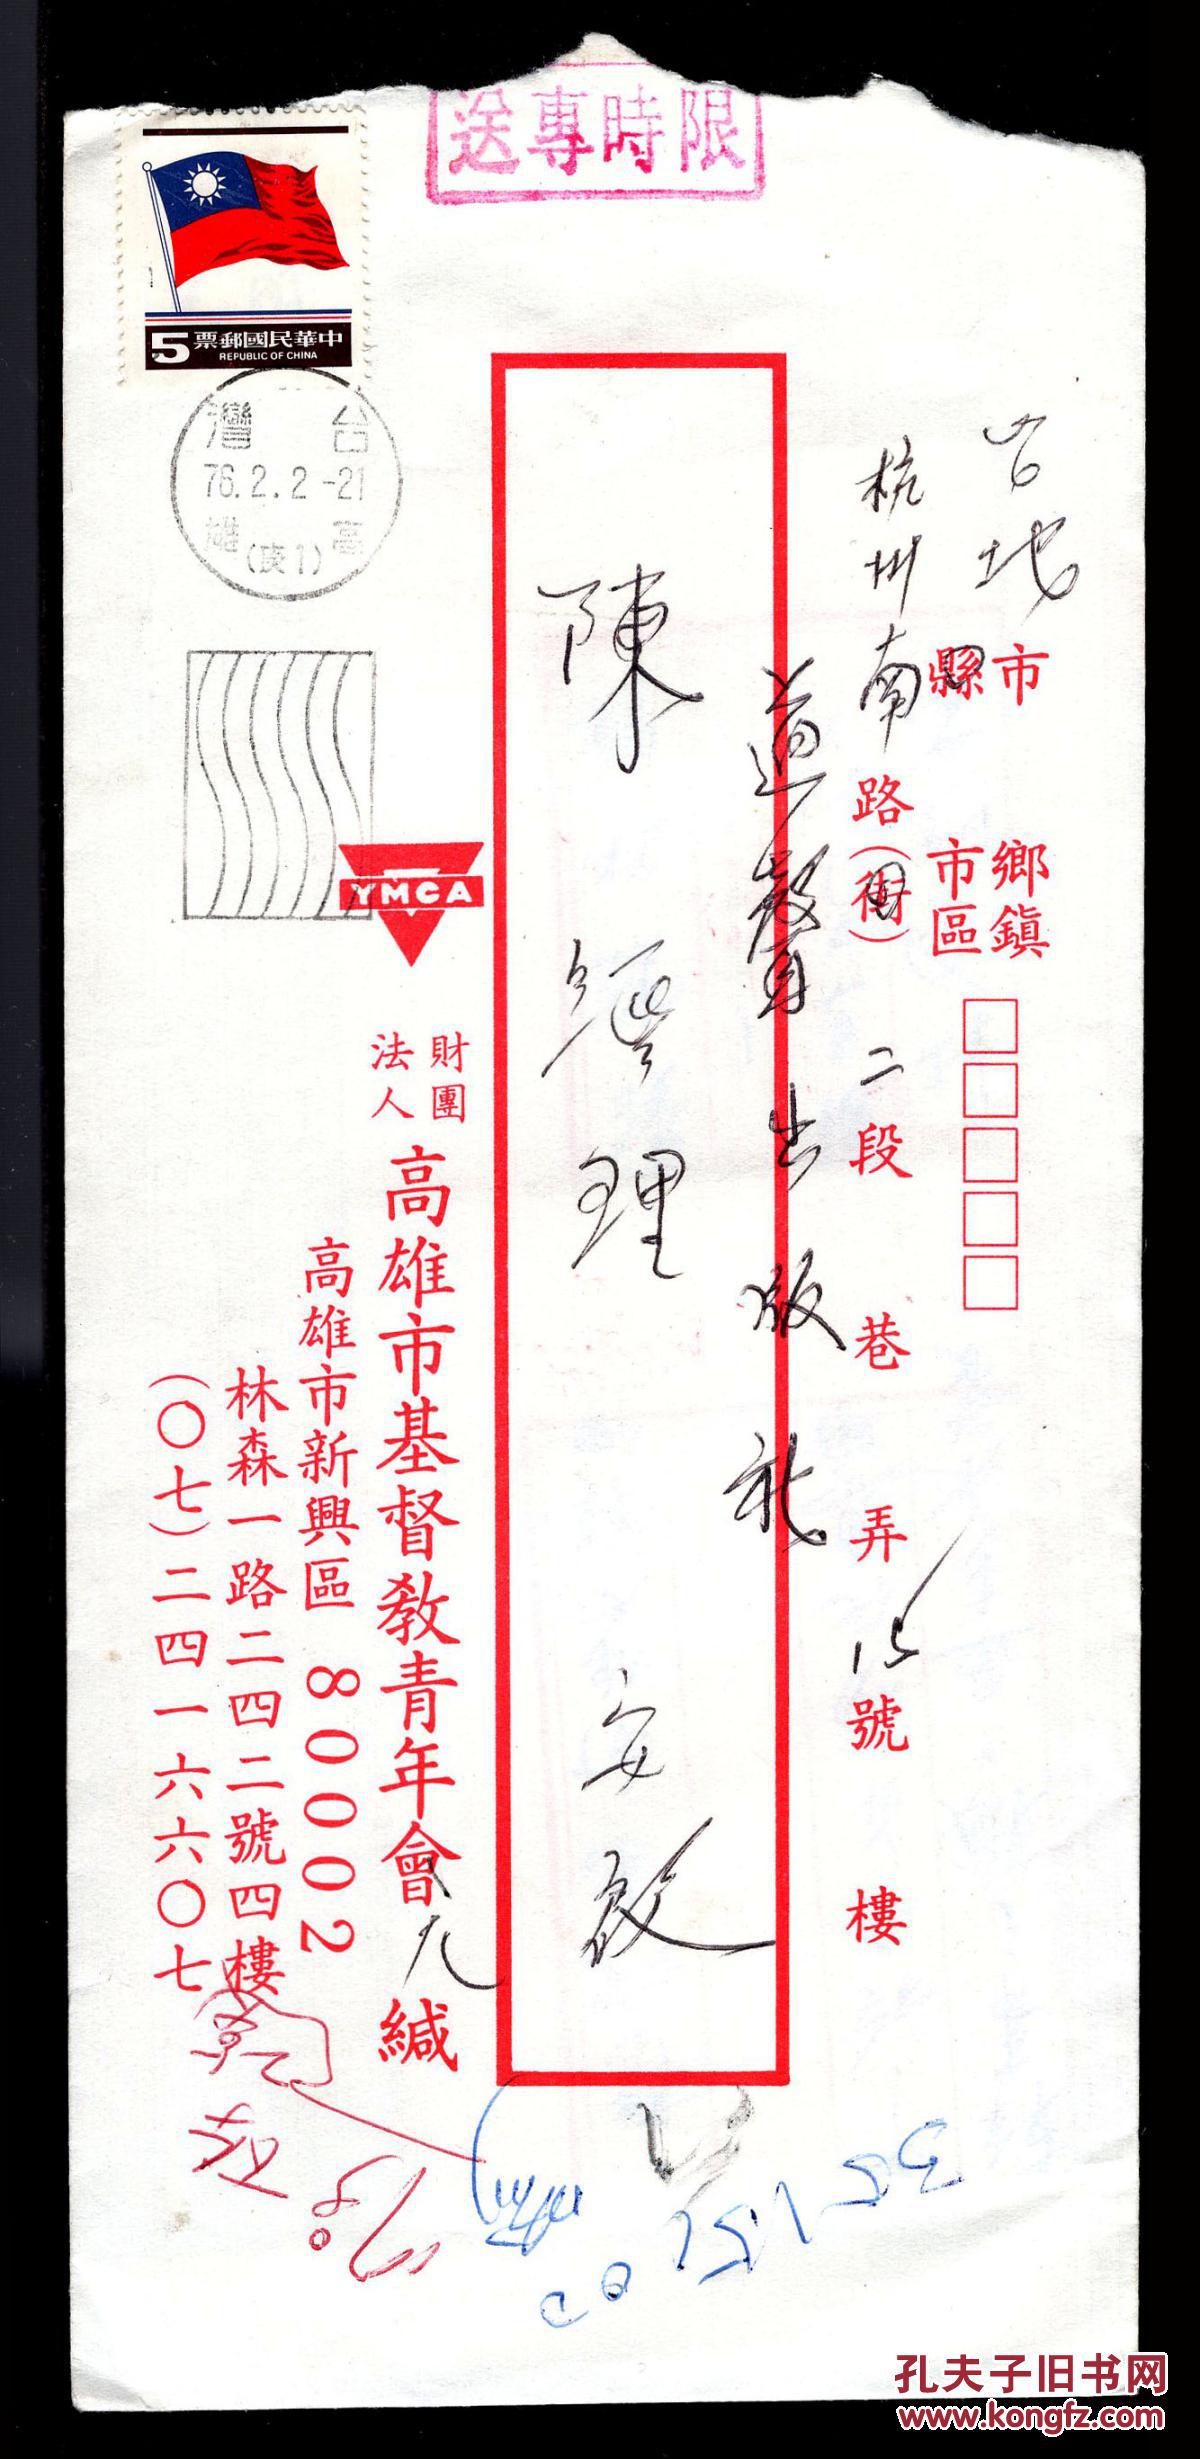 限時專送
中華民國郵票
5
REPUBLIC OF CHINA
台灣
76.2.2-21
高雄
(庚1)
台北市
縣
鄉鎮
市區
杭州南路(街)二段巷弄15號樓
道聲出版社
陳經理 安啟
YMCA
財團
法人
高雄市基督教青年會 緘
高雄市新興區 80002
林森一路二四二號四樓
(〇七)二四一六六〇七
孔夫子旧书网
www.kongfz.com